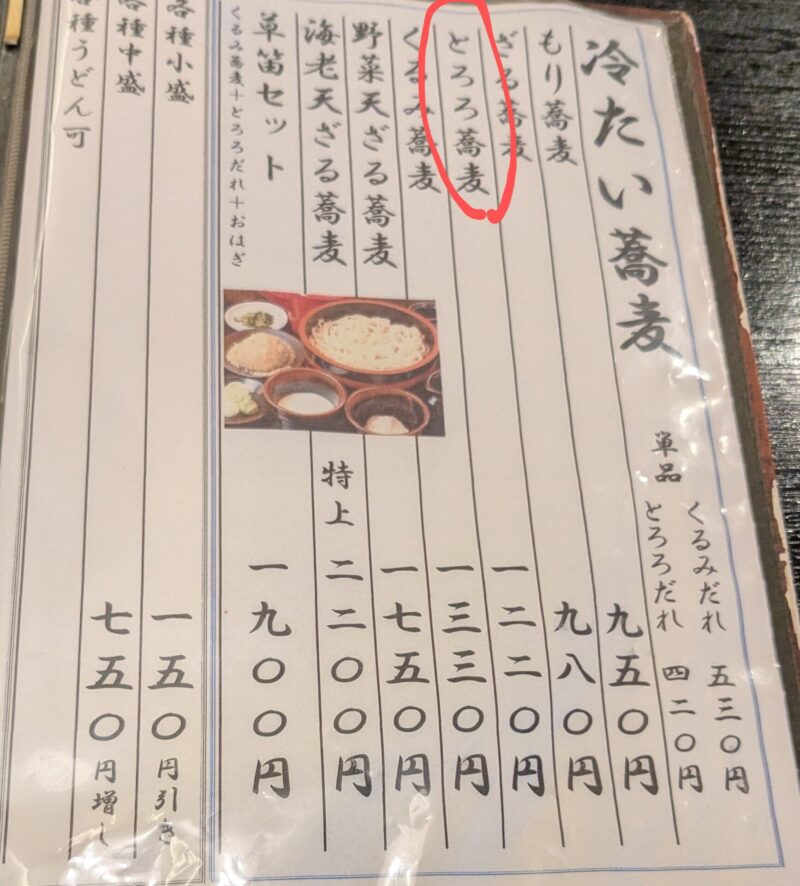 冷たい蕎麦
単品
くるみだれ 五三〇円
とろろだれ 四二〇円
もり蕎麦 九五〇円
ざる蕎麦 九八〇円
とろろ蕎麦 一二二〇円
くるみ蕎麦 一三三〇円
野菜天ざる蕎麦 一七五〇円
海老天ざる蕎麦 特上 二二〇〇円
草笛セット 一九〇〇円
くるみ蕎麦+とろろだれ+おはぎ
各種小盛 一五〇円引き
各種中盛 七五〇円増し
各種うどん可